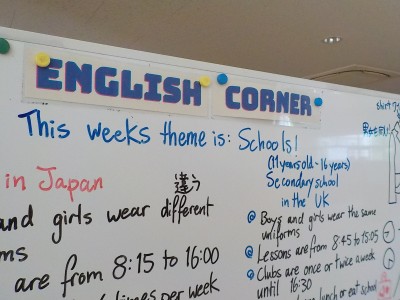 ENGLISH CORNER
This weeks theme is: Schools!
(11 years old - 16 years)
Secondary school
in the UK
in Japan
違う
and girls wear different
are from 8:15 to 16:00
times per week
Boys and girls wear the same
uniforms
Lessons are from 8:45 to 15:05
Clubs are once or twice a week
until 16:30
lunch or eat school